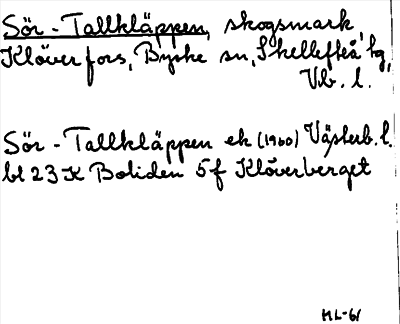 Sör-Tallkläppen, skogsmark,
Klöverfors, Byske sn, Skellefteå tg,
Vb. l.
Sör-Tallkläppen ek (1960) Västerb. l.
bl 23 K Boliden 5f Klöverberget
ML-61